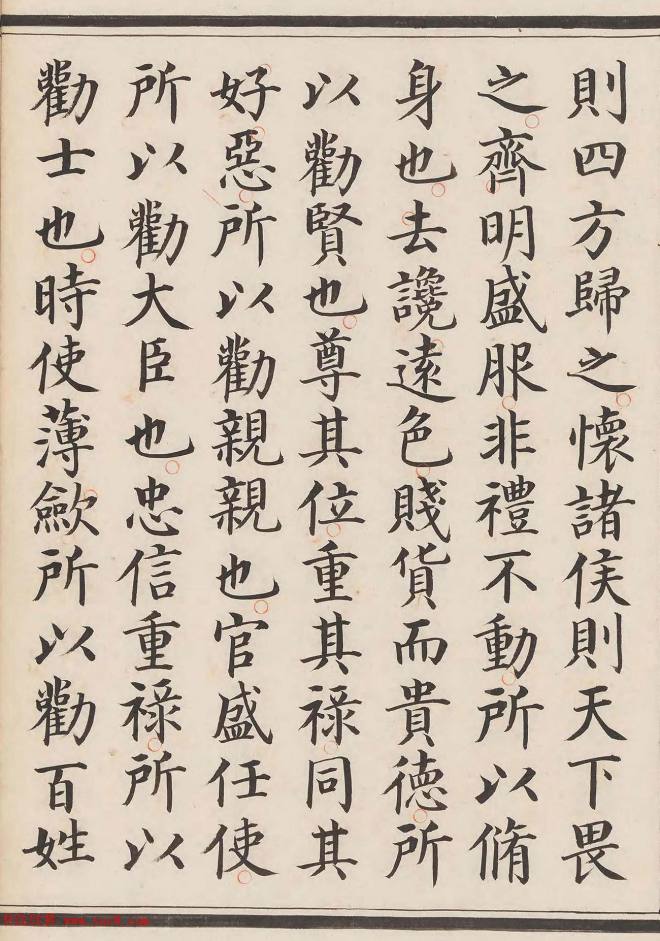 則四方歸之懷諸侯則天下畏
之齊明盛服非禮不動所以脩
身也去讒遠色賤貨而貴德所
以勸賢也尊其位重其祿同其
好惡所以勸親親也官盛任使
所以勸大臣也忠信重祿所以
勸士也時使薄斂所以勸百姓